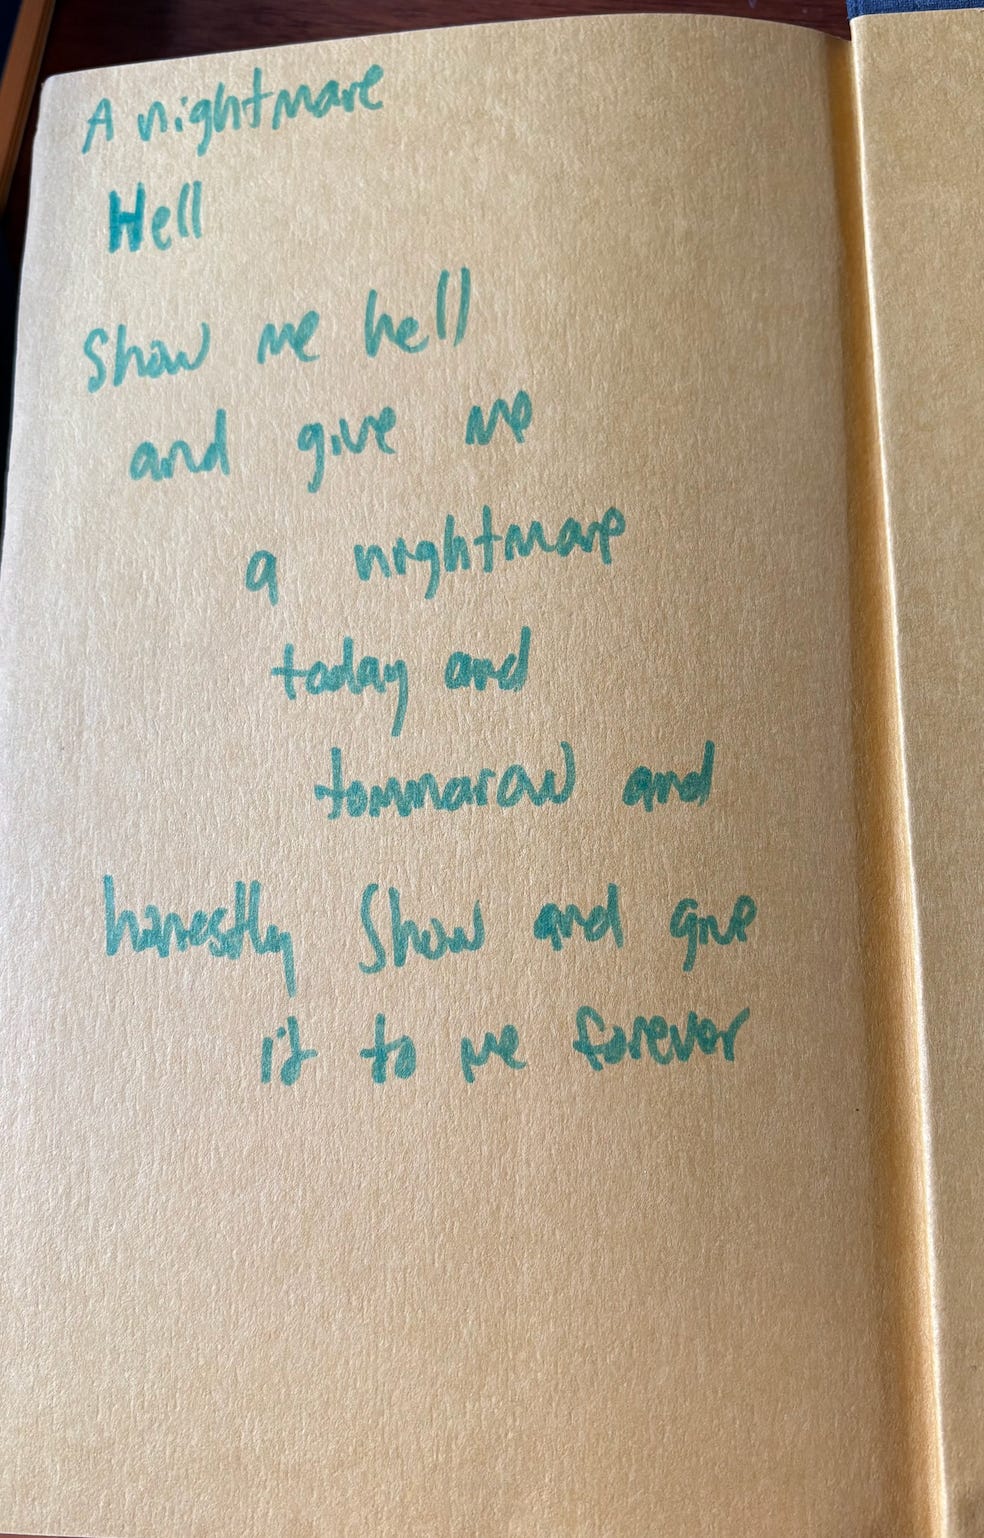 A nightmare
Hell
Show me hell
and give me
a nightmare
today and
tommarow and
honestly Show and give
it to me forever